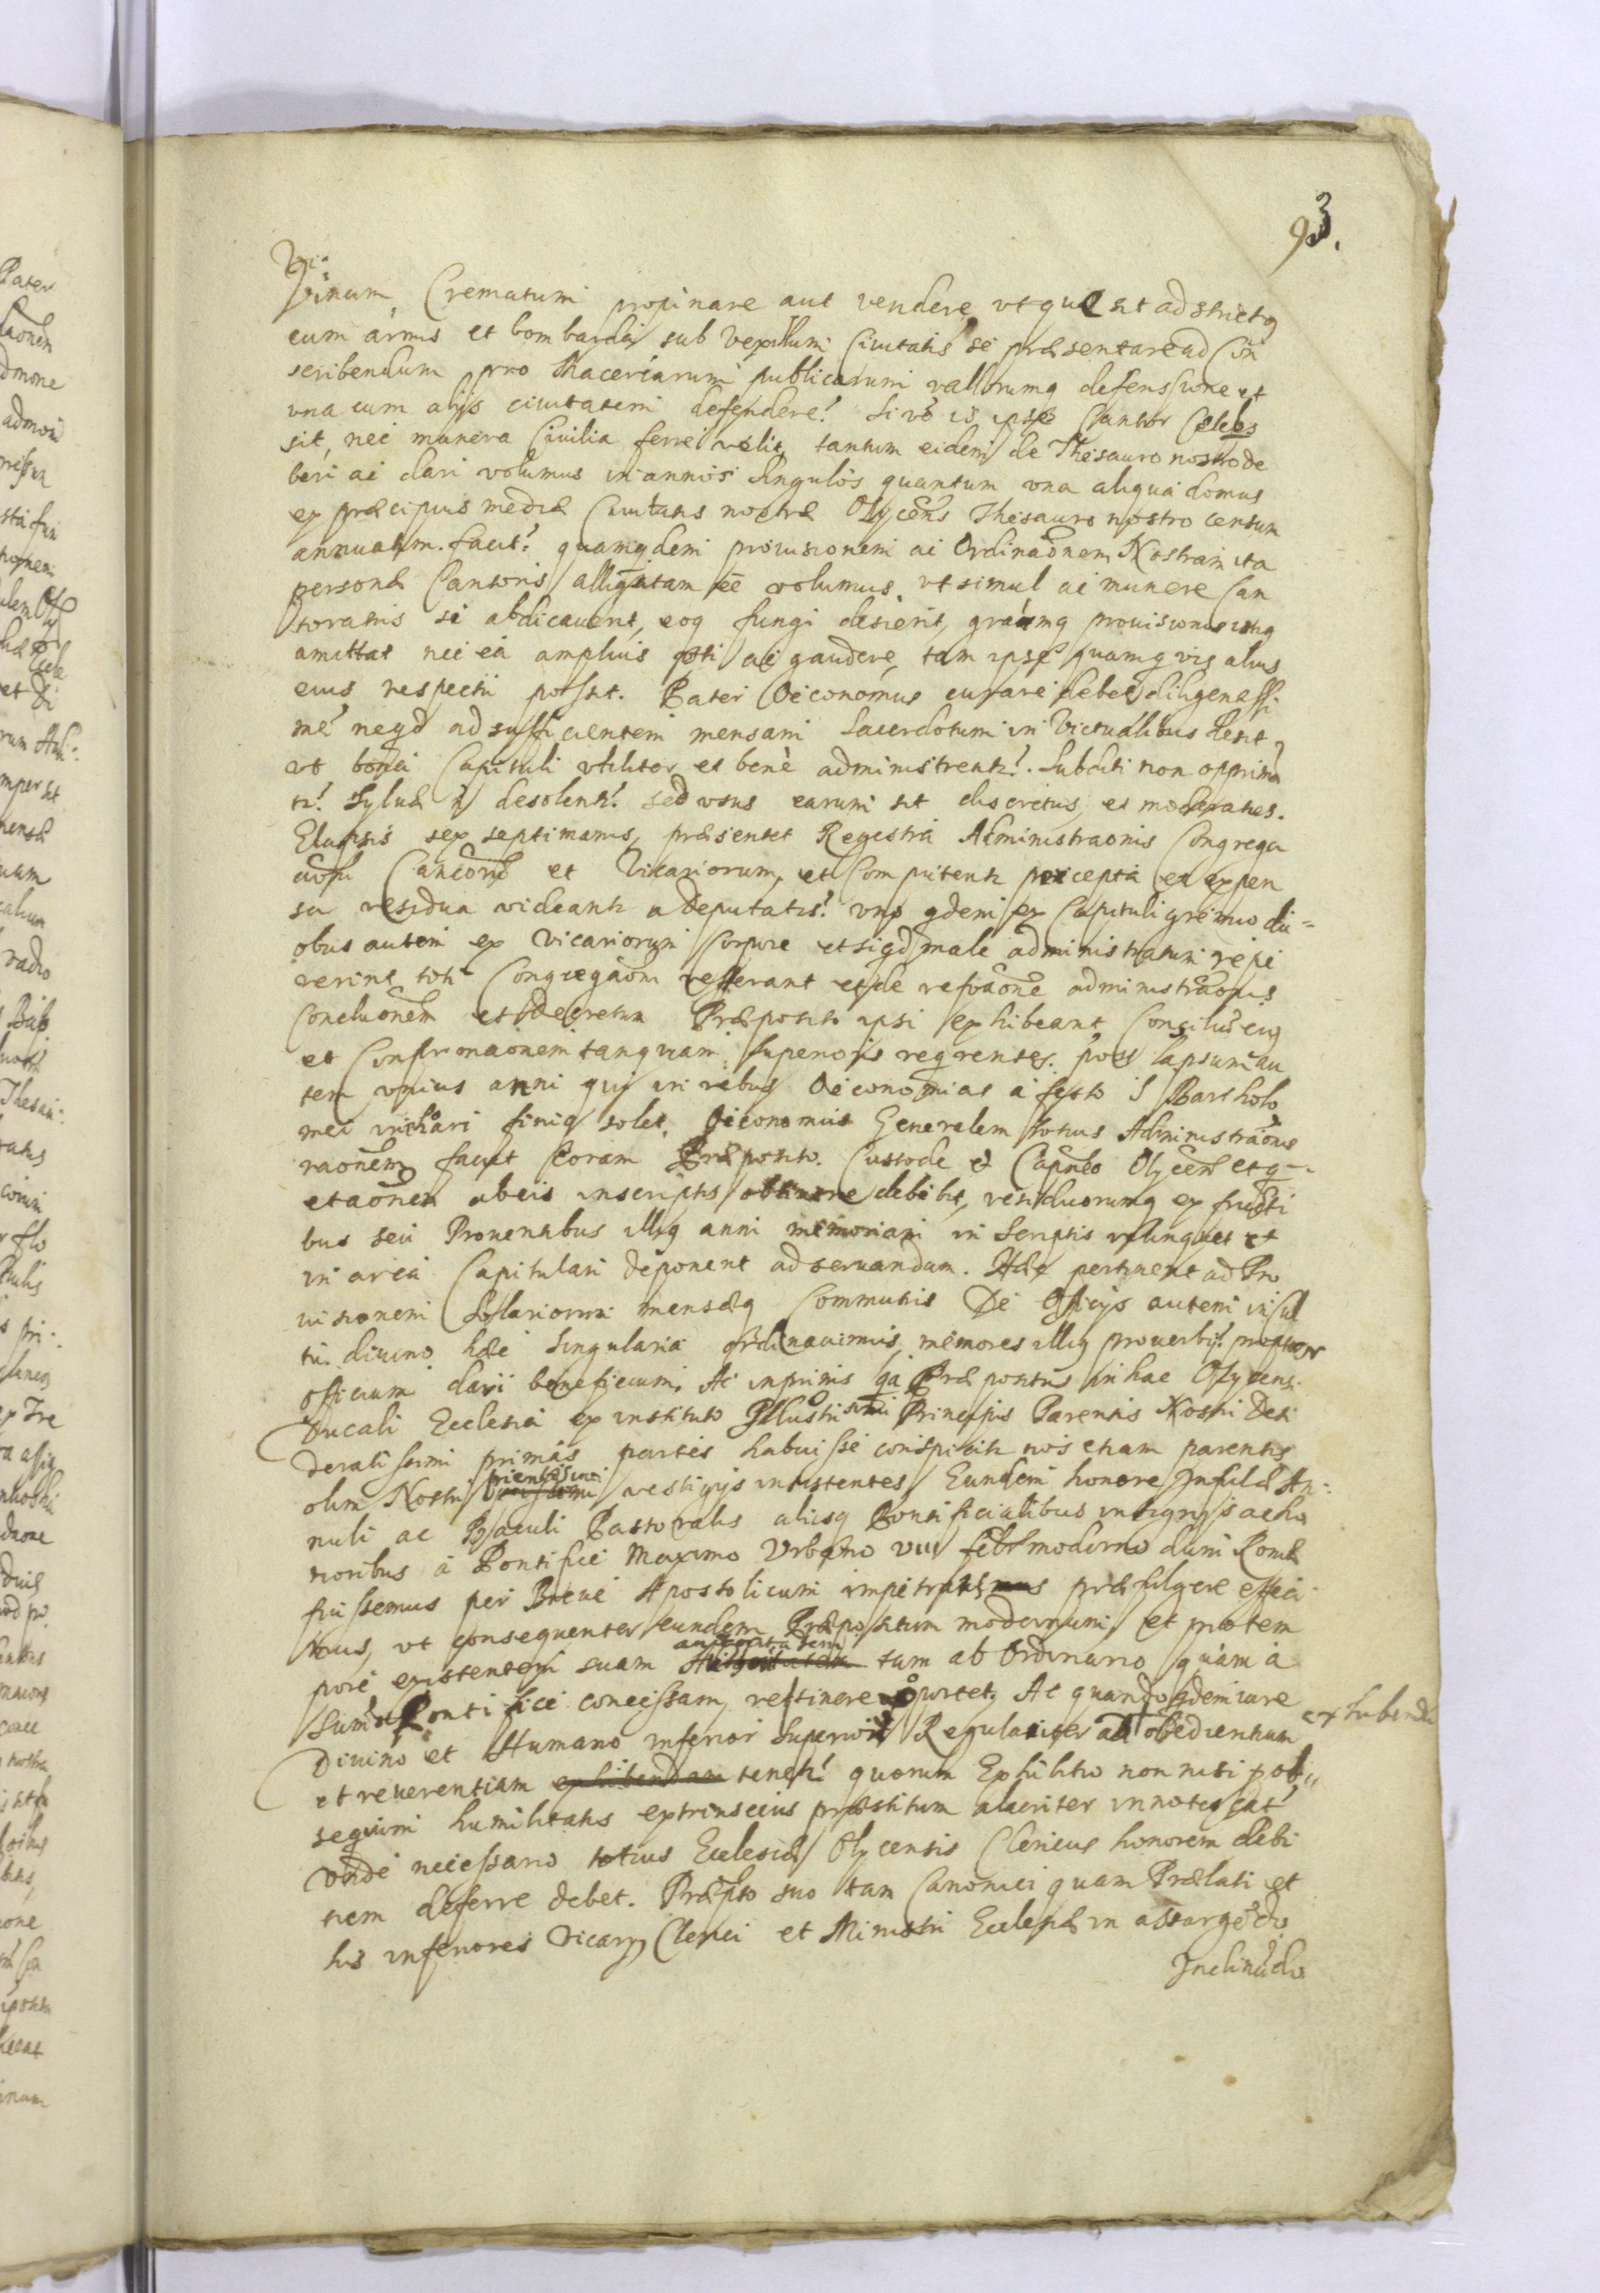 93.
Vinum Crematum propinare aut vendere, vtque sit adstrictq
cum armis et bombarda sub vexillum Ciuitatis se præsentare ad Con
scribendum pro Maceriarum publicarum vallorumq defensione et
vna cum alijs ciuitatem defendere. Si vo is ipse Cantor Celebs
sit, nec munera Ciuilia ferre velit, tantum eidem de Thesauro nostro de
beri ac dari volumus in annos singulos quantum vna aliqua domus
ex præcipuis mediæ Ciuitatis nostræ Olycens Thesauro nostro censum
annuatim facit. quamqdem prouisionem ac Ordinaonem Nostram ita
personæ Cantoris alligatam ee volumus, vt simul ac munere Can
toratus se abdicauerit, eoq fungi desierit, gratiamq prouisionis istiq
amittat nec ea amplius poti ac gaudere, tam ipse quamq vis alius
eius respectu possit. Pater Oeconomus curare debet diligentissi
me neqd ad sufficientem mensam Sacerdotum in Victualibus desit,
vt bona Capituli vtiliter et benè administrentr. Subditi non opprima
tr. Syluæ n desolentr sed vsus earum sit discretus et moderatus.
Elapsis sex septimanis, præsentet Regestra Administraonis Congrega
aoni Canconum et Vicariorum, et Computentr percepta et expen
sa residua videantr a Deputatis. vno qdem ex Capituli gremio du=
obus autem ex Vicariorum Corpore et siqd male administratum repe
rerint toti Congregaoni refferant et de refoaone administraonis
Concluonem et Decretum Præposito ipsi exhibeant Consilium eiq
et Confirmaonem tanquam superioris reqrentes. post lapsum au
tem vnius anni qui in rebus Oeconomiae a festo S Bartholo
mei inchoari finiq solet, Oeconomus Generalem totius Administraonis
raonem faciet Coram Præposito. Custode et Capitulo Olycens et q
etaonem ab eis inscriptis obtinere debebit, residuorumq ex fructi
bus seu Prouentibus illiq anni memoriam in Scriptis relinquet et
in arca Capitulari deponent adseruandam. Hæc pertinent ad Pro
uisionem mensæq Communis De Officijs autem in cul
tu diuino hæc Singularia ordinauimus, memores illiq prouerbij propter
officium dari beneficium. Ac inprimis qa Præpositus in hac Olycensi
Ducali Ecclesia ex instituto Illustrissimi Principis Parentis Nostri Desi
deratissimi primas partes habuisse conspicitr nos etiam parentis
olim Nostri pientissimi vestigijs insistentes Eundem honore Infulæ An=
nuli ac Baculi Pastoralis alijsq Pontificialibus insignijs ac ho
noribus a Pontifice Maximo Vrbano VIII moderno dum Romæ
fuissemus per Breue Apostolicum impetratis præfulgere effeci
mus, vt consequenter eundem Præpositum modernum et pro tem
pore existentem suam authoritatem tum ab Ordinario quàm a
Summo Pontifice concessam, retinere oportet. Ac quando qdem iure
Diuino et Humano inferior Superiori Regulariter ad obedientiam
et reuerentiam exhibendam tenetr quorum Exhibitio non nisi p ob=
sequium humilitatis extrinsecius præstitum alacriter innotescat
vnde necessario totius Ecclesiæ Olycensis Clericus honorem debi
tum deferre debet. Præpto suo tam Canonici quam Prælati et
his inferiores Vicarij Clerici et Ministri Ecclesiæ in assurgedo
Inclinado